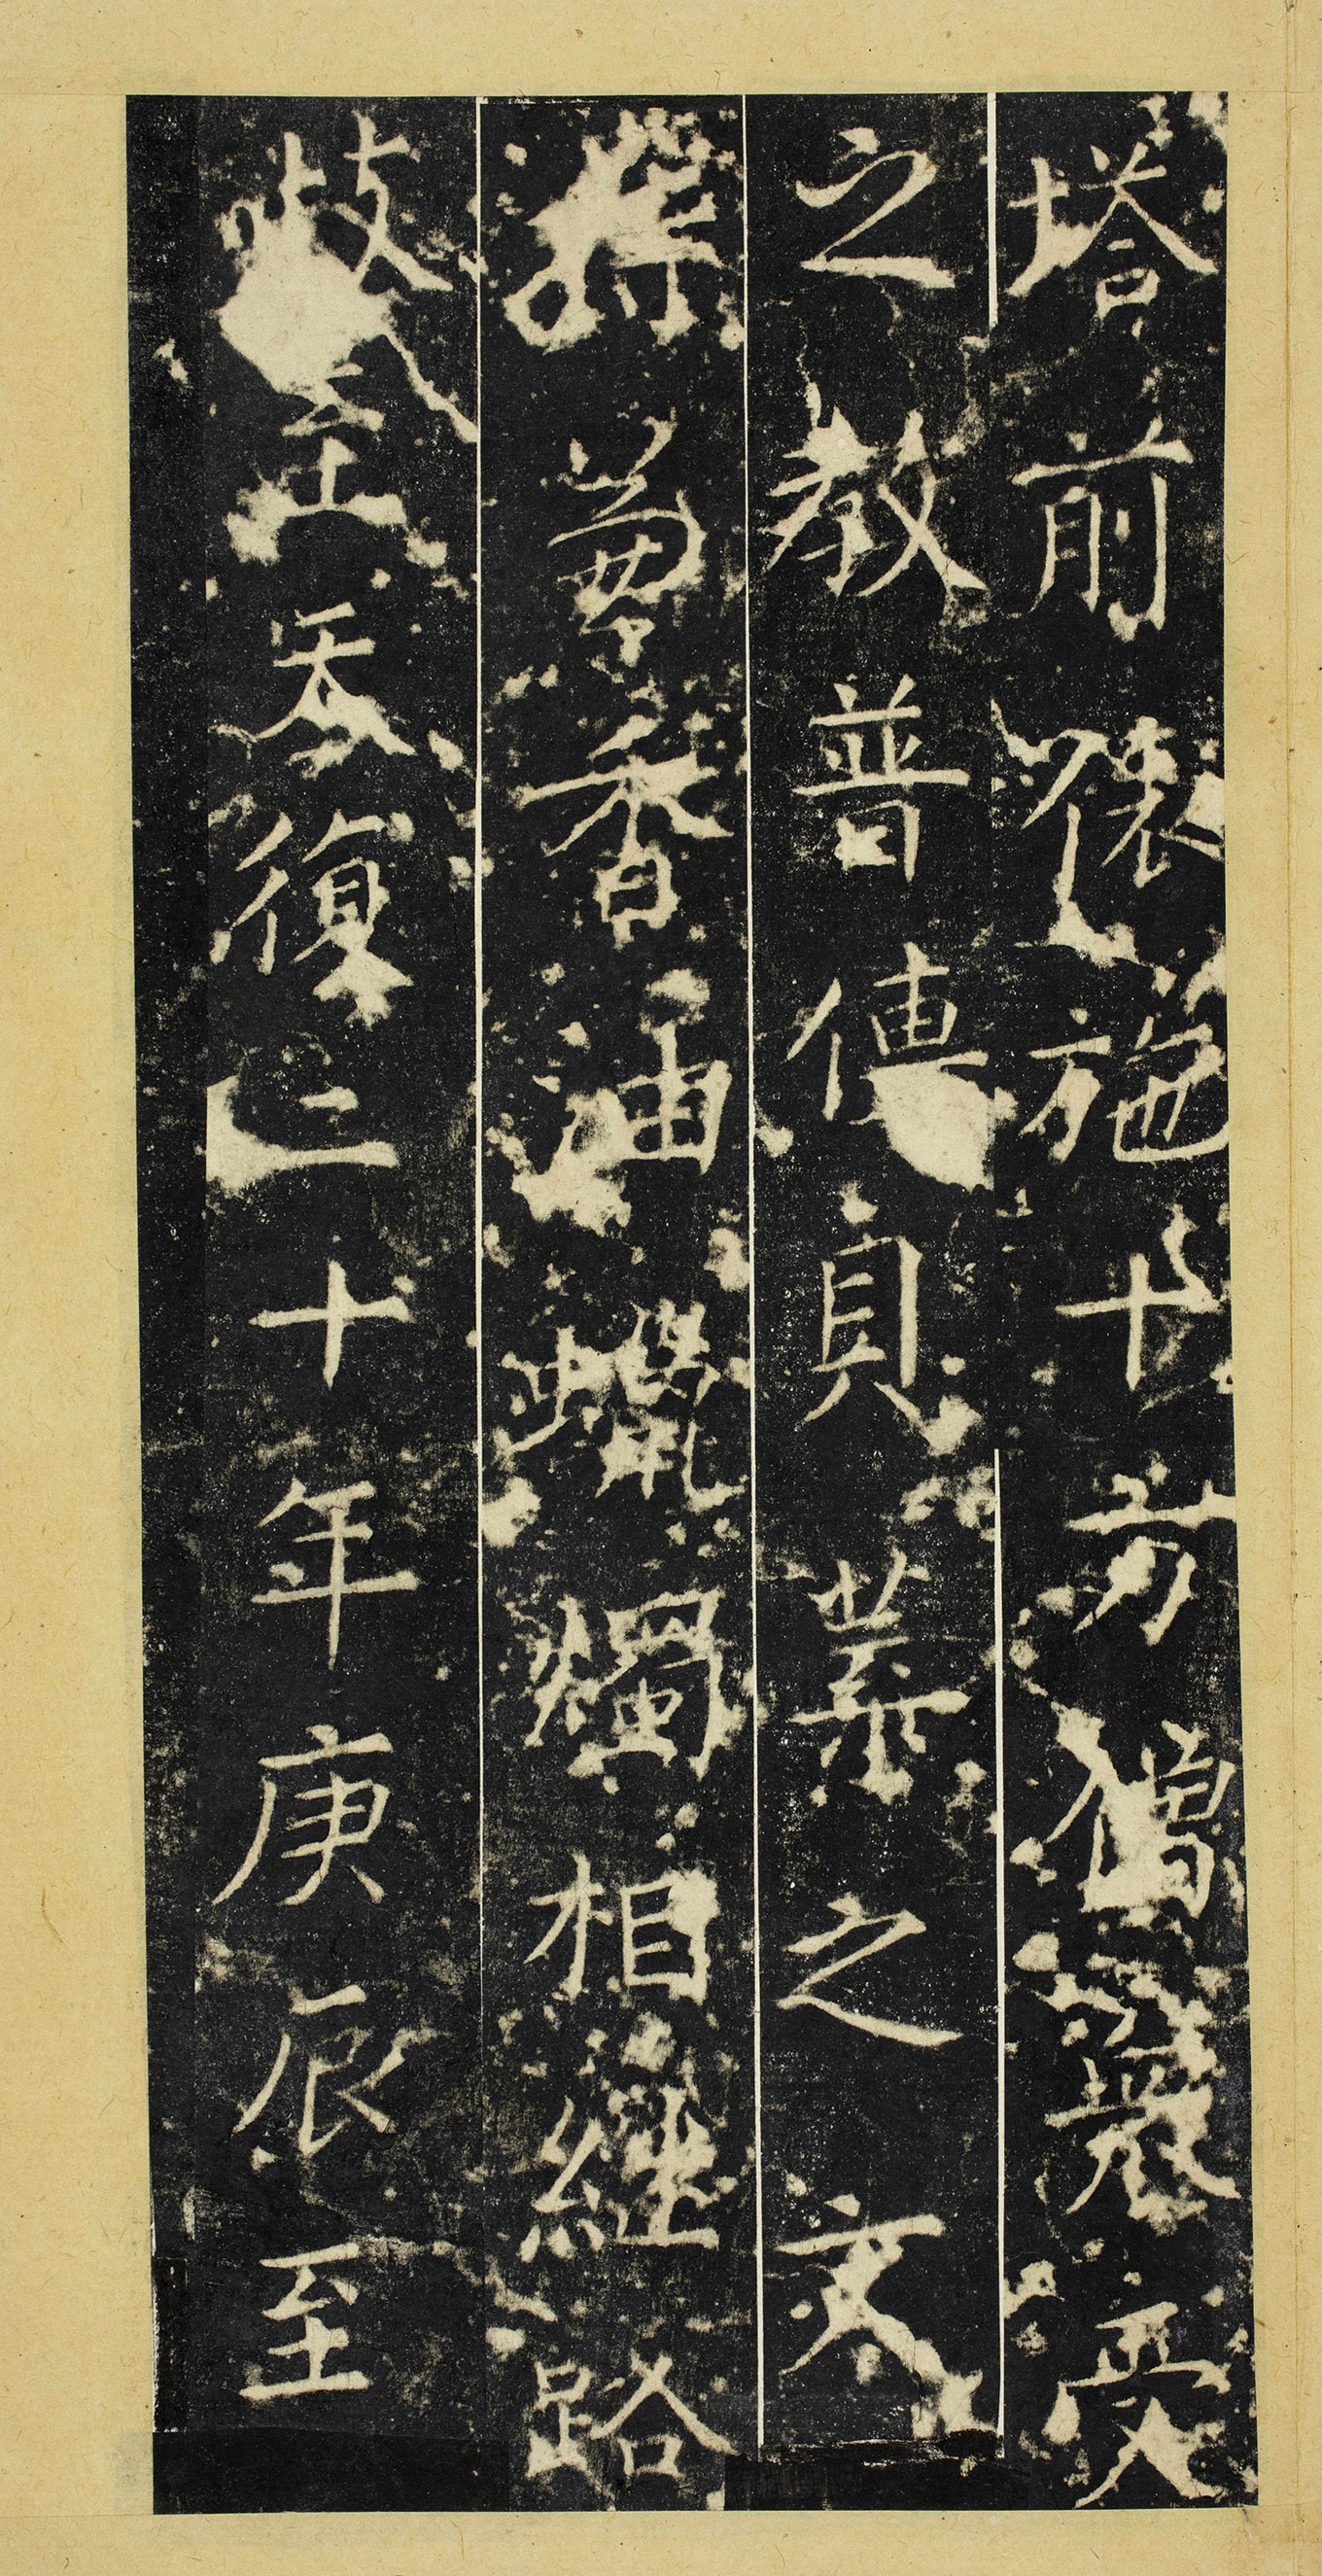 塔前施十方僧衆
之教普傳貝葉之文
蔔香油蠟燭相継路
歧至天復二十年庚辰至